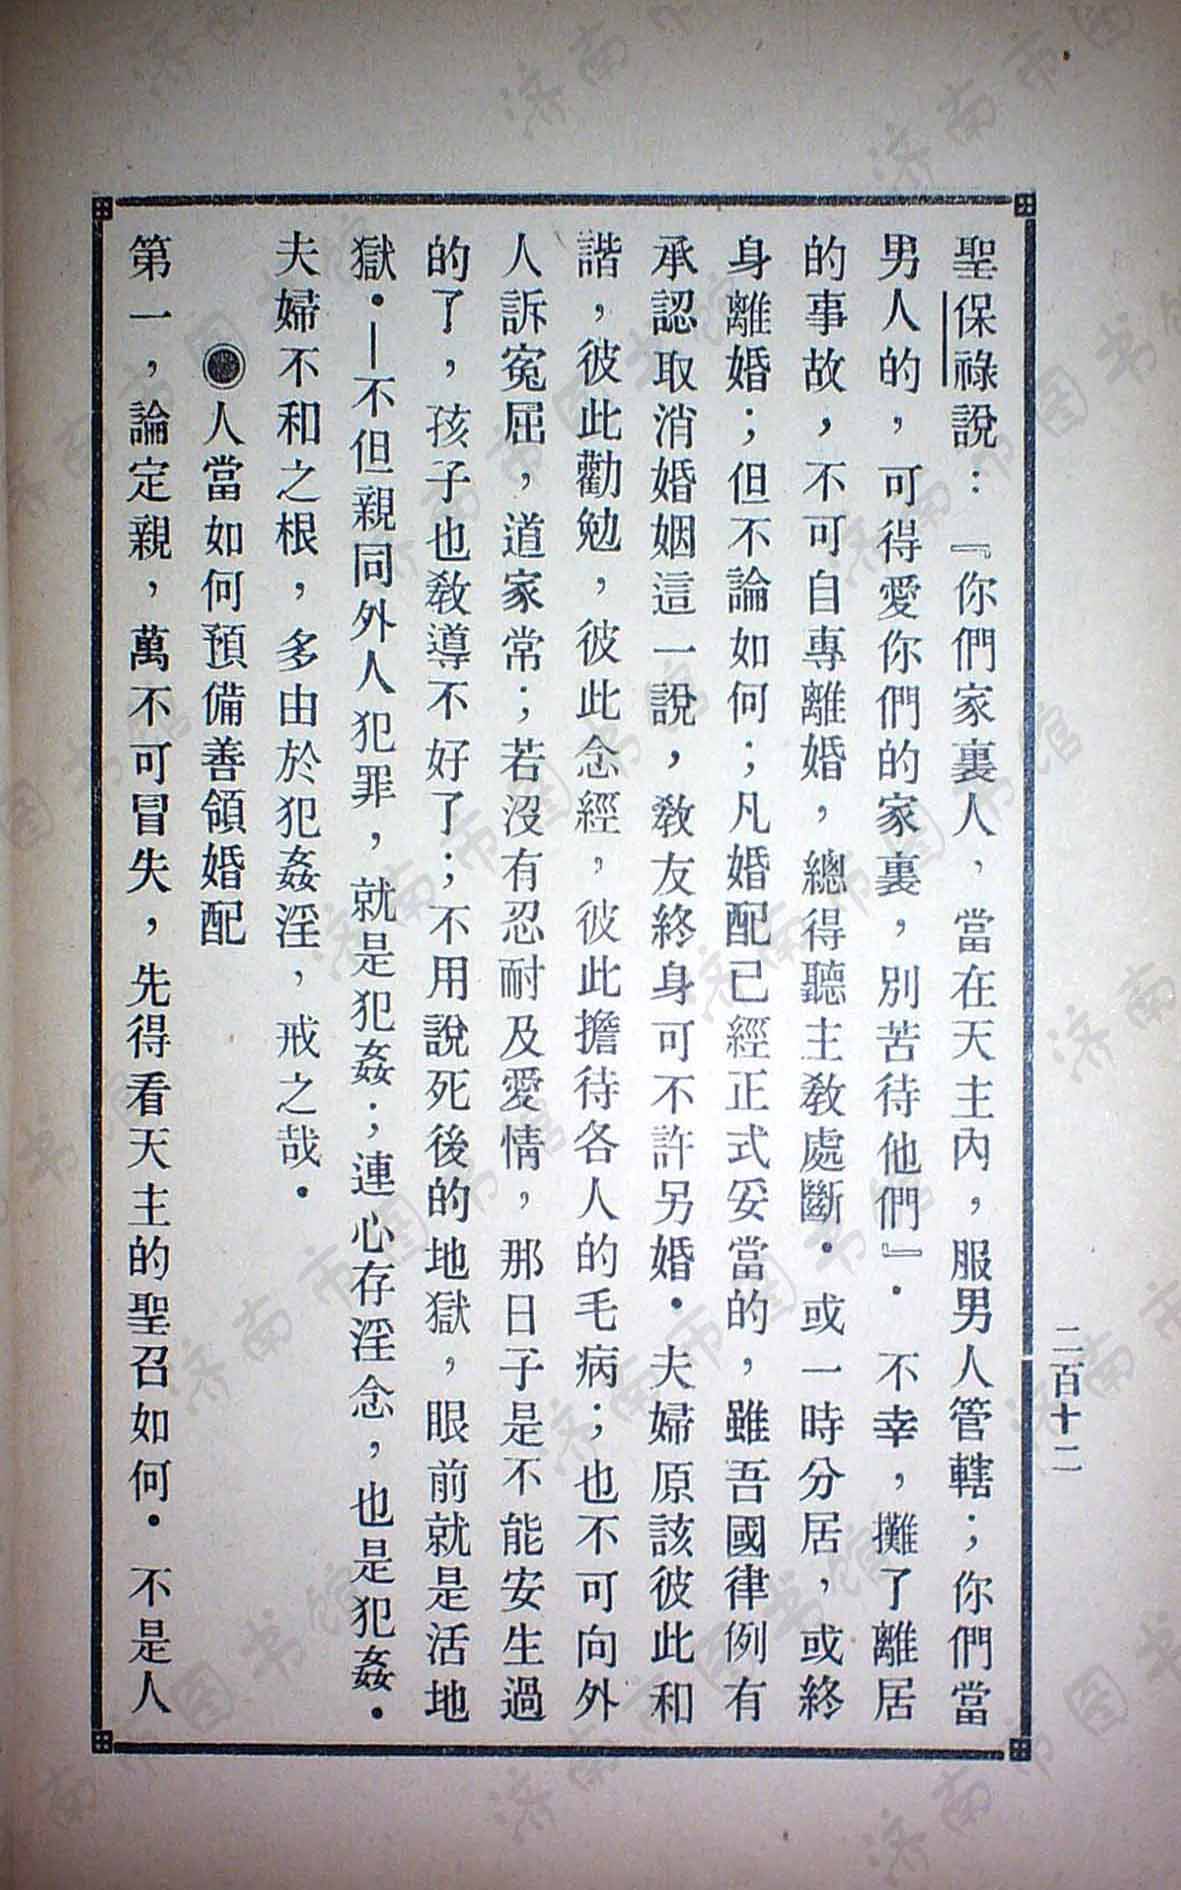 聖保祿說：『你們家裏人，當在天主內，服男人管轄；你們當
男人的，可得愛你們的家裏，別苦待他們』．不幸，攤了離居
的事故，不可自專離婚，總得聽主教處斷．或一時分居，或終
身離婚；但不論如何；凡婚配已經正式妥當的，雖吾國律例有
承認取消婚姻這一說，教友終身可不許另婚．夫婦原該彼此和
諧，彼此勸勉，彼此念經，彼此擔待各人的毛病；也不可向外
人訴寃屈，道家常；若沒有忍耐及愛情，那日子是不能安生過
的了，孩子也教導不好了；不用說死後的地獄，眼前就是活地
獄．—不但親同外人犯罪，就是犯姦；連心存淫念，也是犯姦．
夫婦不和之根，多由於犯姦淫，戒之哉．
◉人當如何預備善領婚配
第一，論定親，萬不可冒失，先得看天主的聖召如何．不是人
二百十二
济南市图书馆